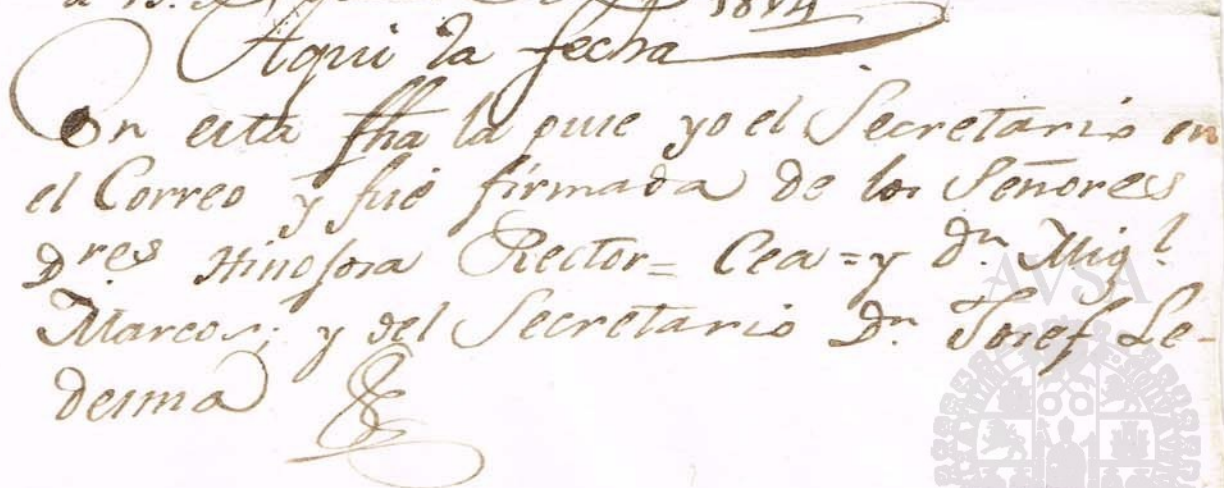 1814
Aqui la fecha
En esta fha la puse yo el Secretario en
el Correo y fué firmada de los Señores
D.res Hinojosa Rector= Cea =y Dn. Mig.l
Marcos; y del Secretario Dn. Josef Le-
desma
AVSA